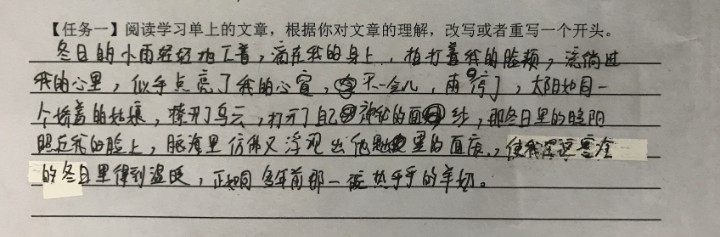 【任务一】阅读学习单上的文章，根据你对文章的理解，改写或者重写一个开头。
冬日的小雨轻轻拍打着，滴在我的身上，拍打着我的脸颊，流淌进
我的心里，似乎点亮了我的心窗，不一会儿，雨停了，太阳如同一
个娇羞的姑娘，撩开了乌云，打开了自己神秘的面纱，那冬日里的暖阳
照在我的脸上，脑海里仿佛又浮现出他黝黑的面庞，使我在寒冷
的冬日里得到温暖，正如同多年前那一碗热乎乎的羊奶。